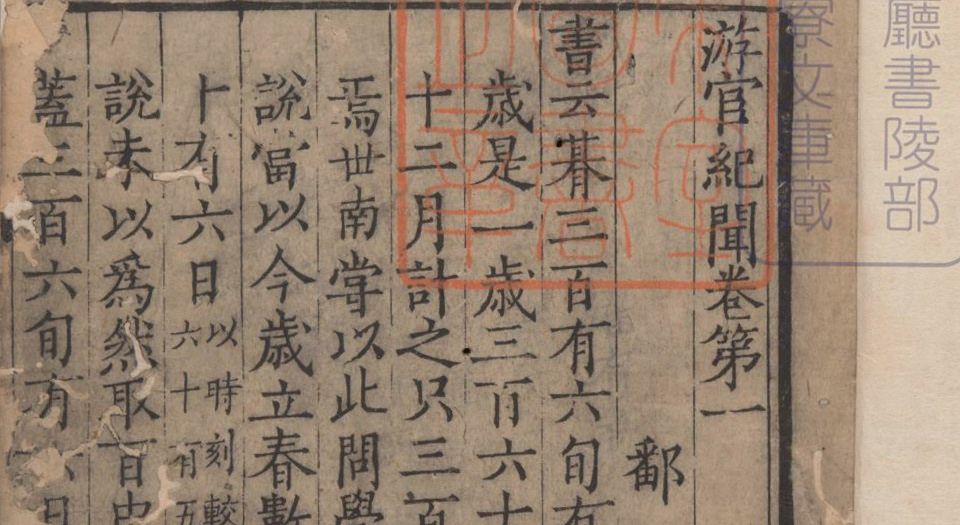 廳書陵部
寮文庫蔵
游宦紀聞卷第一
鄱
書云朞三百有六旬有
歳是一歳三百六十
十二月計之只三百
焉世南嘗以此問學
說當以今歳立春數
十有六日以時刻較
六十有五
說未以爲然取百
蓋三百六旬有六日